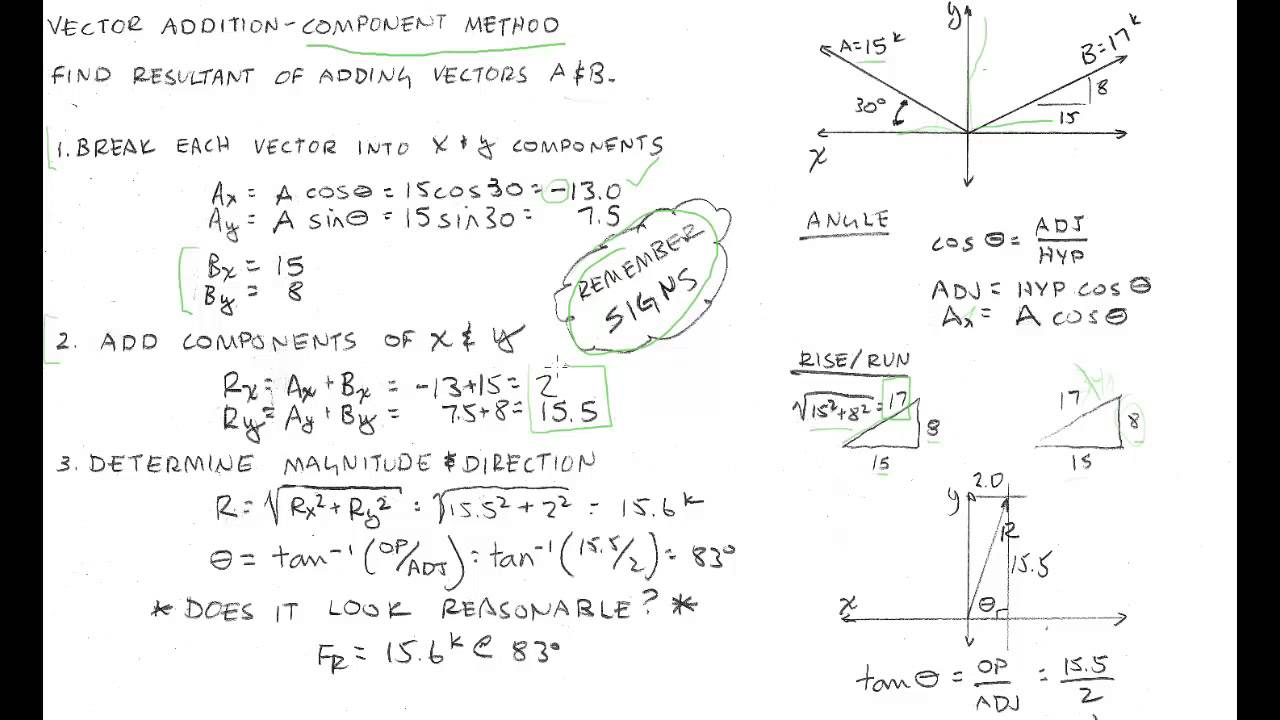 VECTOR ADDITION-COMPONENT METHOD
FIND RESULTANT OF ADDING VECTORS A & B.
1. BREAK EACH VECTOR INTO X & y COMPONENTS
Ax = A cosθ = 15cos30 = -13.0
Ay = A sinθ = 15sin30 = 7.5
Bx = 15
By = 8
REMEMBER
SIGNS
2. ADD COMPONENTS OF X & y
Rx = Ax + Bx = -13+15 = 2
Ry = Ay + By = 7.5+8 = 15.5
3. DETERMINE MAGNITUDE & DIRECTION
R = √Rx²+Ry² = √15.5²+2² = 15.6k
θ = tan⁻¹(OP/ADJ) = tan⁻¹(15.5/2) = 83°
* DOES IT LOOK REASONABLE? *
FR = 15.6k @ 83°
y
A=15k
B=17k
30°
8
15
X
ANGLE
cos θ = ADJ/HYP
ADJ = HYP cos θ
Ax = A cosθ
RISE/RUN
√15²+8² = 17
8
15
17
8
15
2.0
y
R
15.5
θ
X
tan θ = OP/ADJ = 15.5/2